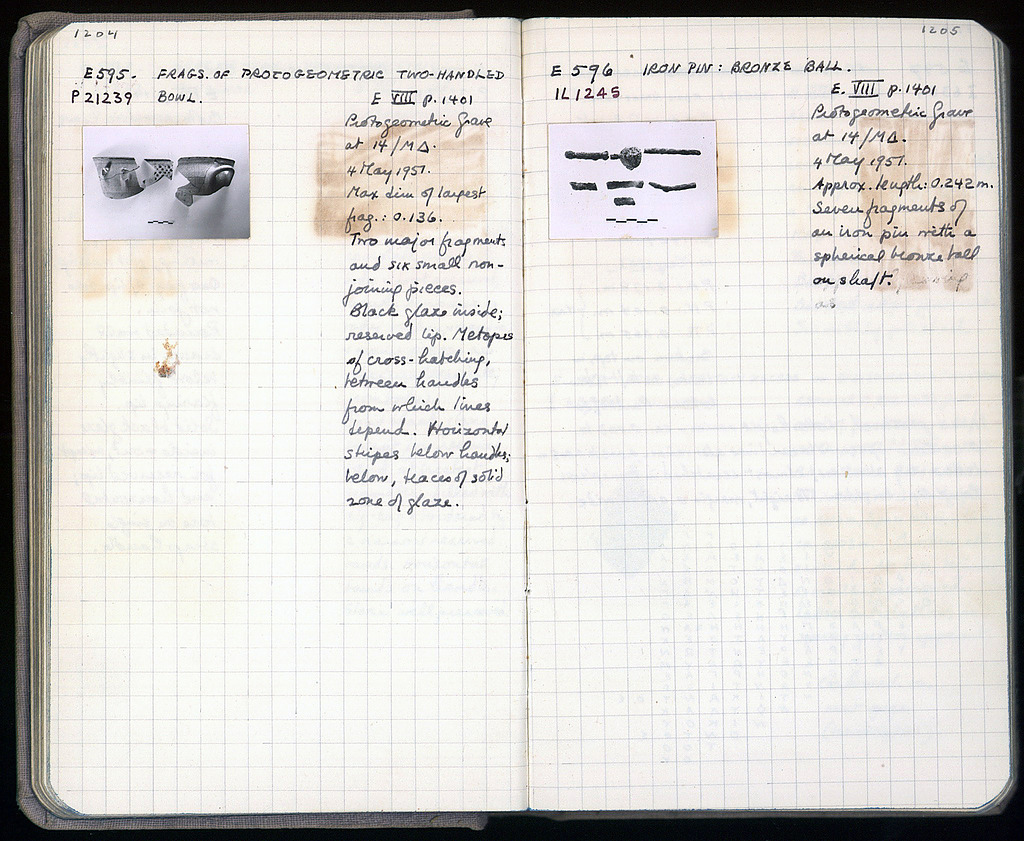 1204
E595. FRAGS. OF PROTOGEOMETRIC TWO-HANDLED
P 21239 BOWL.
E VIII p. 1401
Protogeometric Grave
at 14/MΔ.
4 May 1951.
Max dim of largest
frag.: 0.136.
Two major fragments
and six small non-
joining pieces.
Black glaze inside;
reserved lip. Metopes
of cross-hatching,
between handles
from which lines
depend. Horizontal
stripes below handles;
below, traces of solid
zone of glaze.
1205
E 596 IRON PIN: BRONZE BALL.
IL 1245
E. VIII p. 1401
Protogeometric Grave
at 14/MΔ.
4 May 1951.
Approx. length: 0.242 m.
Seven fragments of
an iron pin with a
spherical bronze ball
on shaft.